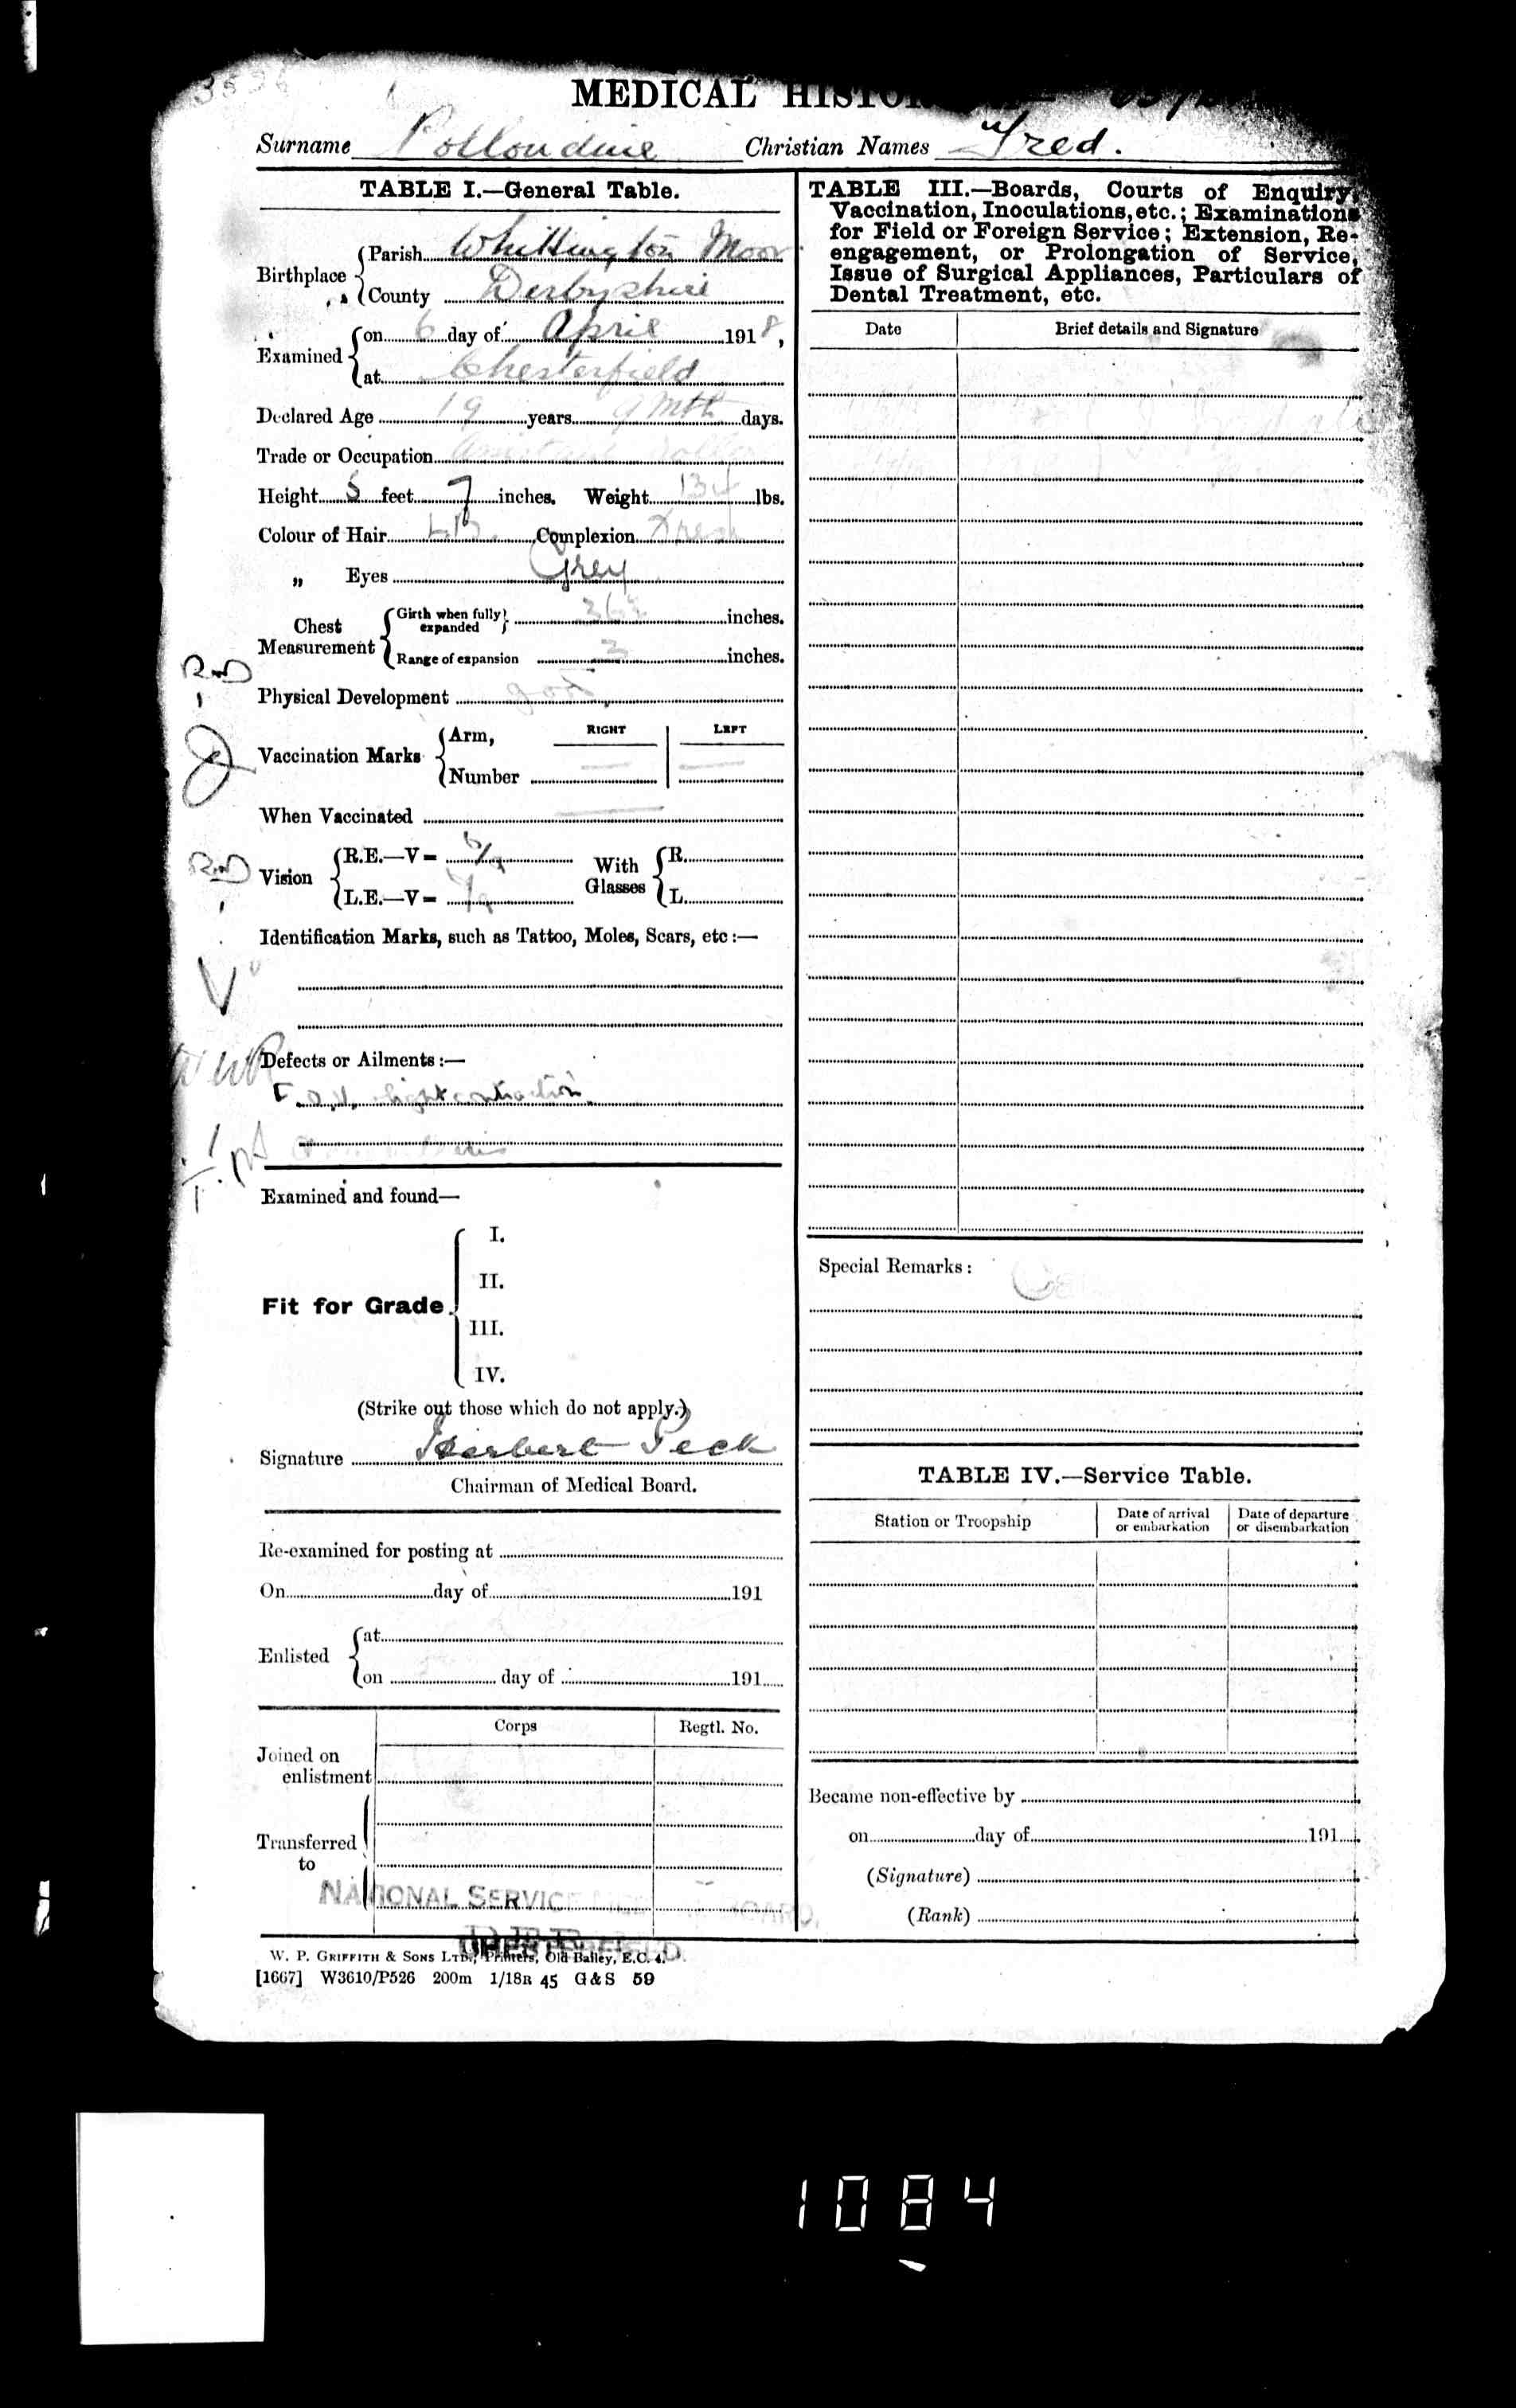 MEDICAL HISTOR
Surname Pollendine Christian Names Fred.
TABLE I.—General Table.
Birthplace Parish Whittington Moor
County Derbyshire
Examined on 6 day of April 1918,
at Chesterfield
Declared Age 19 years 9 mths days.
Trade or Occupation Assistant
Height 5 feet 7 inches. Weight 134 lbs.
Colour of Hair LB. Complexion Fresh
„ Eyes Grey
Chest Measurement Girth when fully expanded 36½ inches.
Range of expansion 3 inches.
Physical Development good
Vaccination Marks Arm, RIGHT LEFT
Number — —
When Vaccinated —
Vision R.E.—V= 6/9 With Glasses R.
L.E.—V= /9 L.
Identification Marks, such as Tattoo, Moles, Scars, etc:—
Defects or Ailments:—
slight contraction
Examined and found—
Fit for Grade
I.
II.
III.
IV.
(Strike out those which do not apply.)
Signature Herbert Peck
Chairman of Medical Board.
Re-examined for posting at
On day of 191
Enlisted at
on day of 191
Corps Regtl. No.
Joined on enlistment
Transferred to
NATIONAL SERVICE BOARD,
W. P. GRIFFITH & SONS LTD., Printers, Old Bailey, E.C. 4.
[1667] W3610/P526 200m 1/18R 45 G & S 59
TABLE III.—Boards, Courts of Enquiry,
Vaccination, Inoculations, etc.; Examinations
for Field or Foreign Service; Extension, Re-
engagement, or Prolongation of Service,
Issue of Surgical Appliances, Particulars of
Dental Treatment, etc.
Date Brief details and Signature
Special Remarks:
TABLE IV.—Service Table.
Station or Troopship Date of arrival or embarkation Date of departure or disembarkation
Became non-effective by
on day of 191
(Signature)
(Rank)
1084